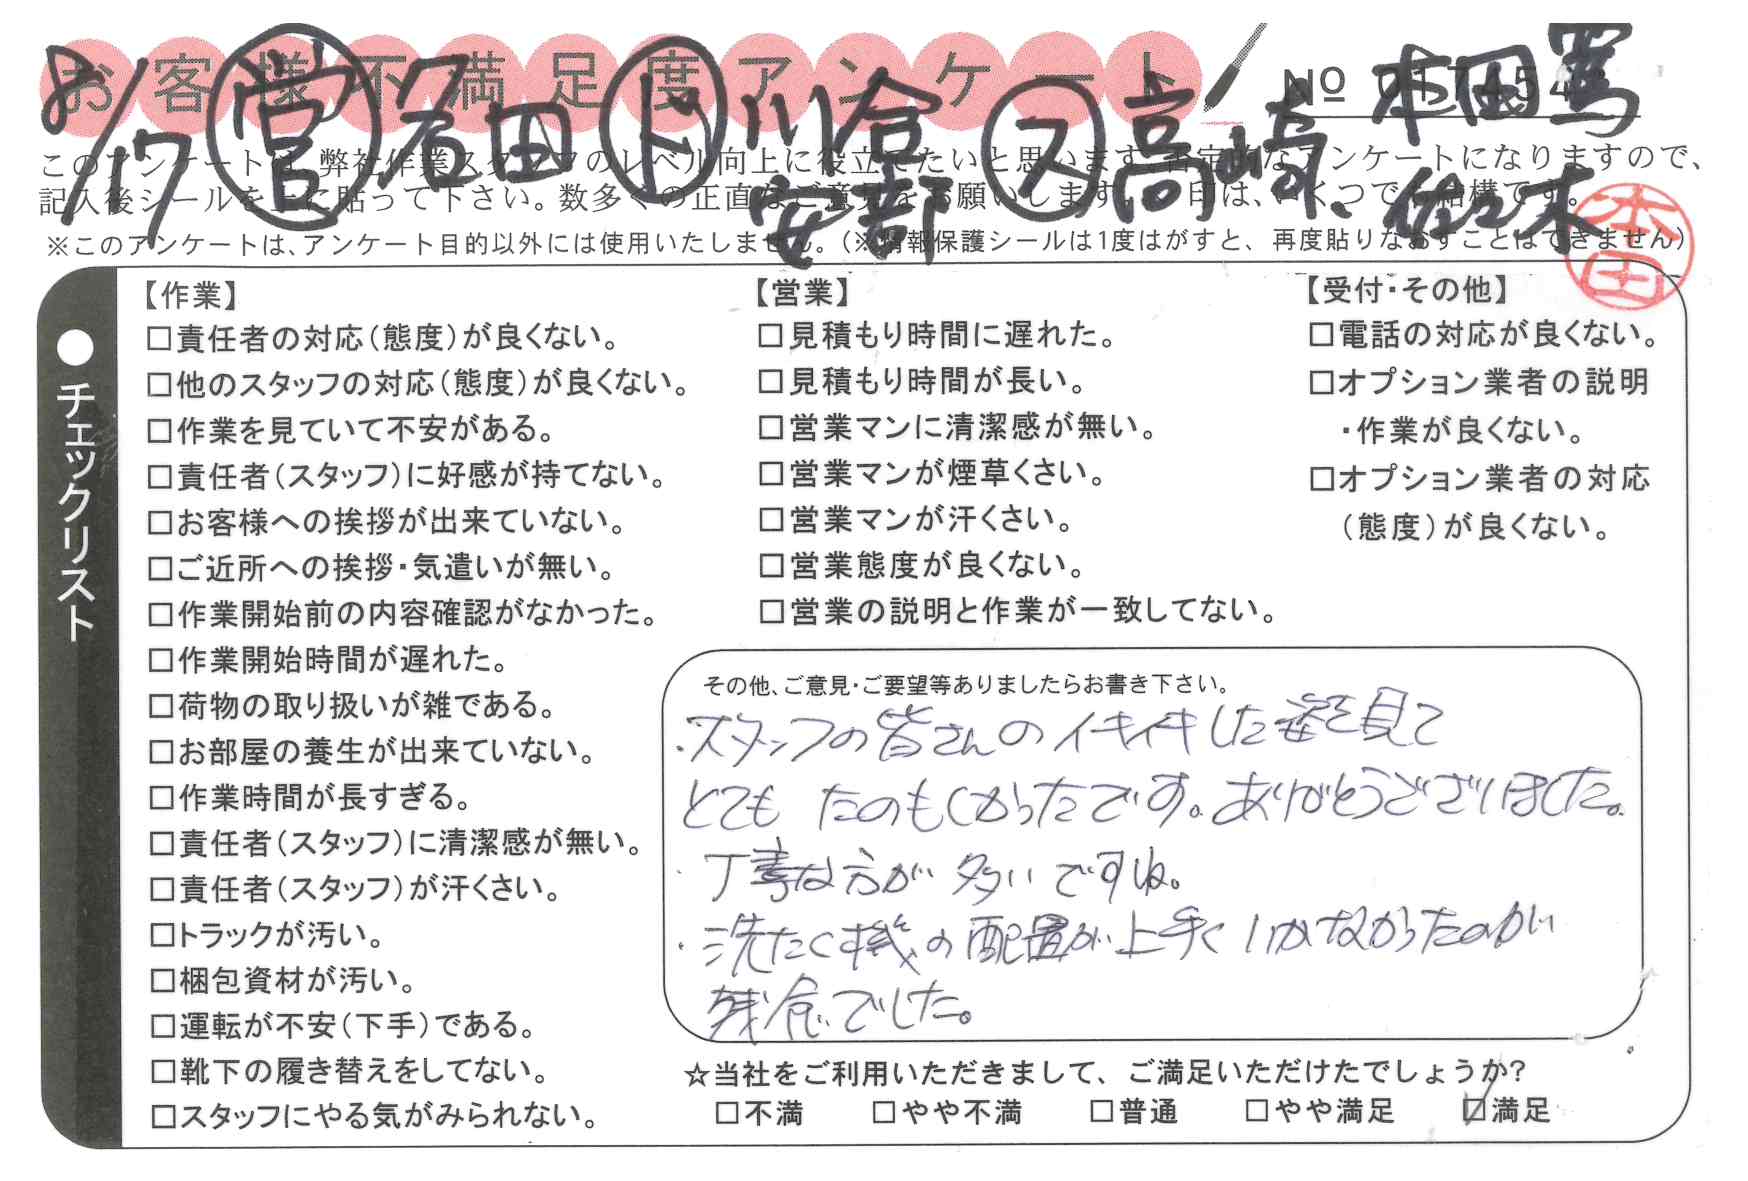 お客様不満足度アンケート
8/17 営 名田 ド 川合 安部 ス 高崎、本田篤 佐々木
№ 017454
このアンケートは、弊社作業スタッフのレベル向上に役立てたいと思います。否定的なアンケートになりますので、
記入後シールを上に貼って下さい。数多くの正直なご意見をお願いします。✓印は、いくつでも結構です。
※このアンケートは、アンケート目的以外には使用いたしません。(※情報保護シールは1度はがすと、再度貼りなおすことはできません)
本田
●チェックリスト
【作業】
□責任者の対応(態度)が良くない。
□他のスタッフの対応(態度)が良くない。
□作業を見ていて不安がある。
□責任者(スタッフ)に好感が持てない。
□お客様への挨拶が出来ていない。
□ご近所への挨拶・気遣いが無い。
□作業開始前の内容確認がなかった。
□作業開始時間が遅れた。
□荷物の取り扱いが雑である。
□お部屋の養生が出来ていない。
□作業時間が長すぎる。
□責任者(スタッフ)に清潔感が無い。
□責任者(スタッフ)が汗くさい。
□トラックが汚い。
□梱包資材が汚い。
□運転が不安(下手)である。
□靴下の履き替えをしてない。
□スタッフにやる気がみられない。
【営業】
□見積もり時間に遅れた。
□見積もり時間が長い。
□営業マンに清潔感が無い。
□営業マンが煙草くさい。
□営業マンが汗くさい。
□営業態度が良くない。
□営業の説明と作業が一致してない。
【受付・その他】
□電話の対応が良くない。
□オプション業者の説明
・作業が良くない。
□オプション業者の対応
(態度)が良くない。
その他、ご意見・ご要望等ありましたらお書き下さい。
・スタッフの皆さんのイキイキした姿を見て
とても たのもしかったです。ありがとうございました。
・丁寧な方が多いですね。
・洗たく機の配置が上手くいかなかったのが
残念でした。
☆当社をご利用いただきまして、ご満足いただけたでしょうか?
□不満 □やや不満 □普通 □やや満足 ☑満足